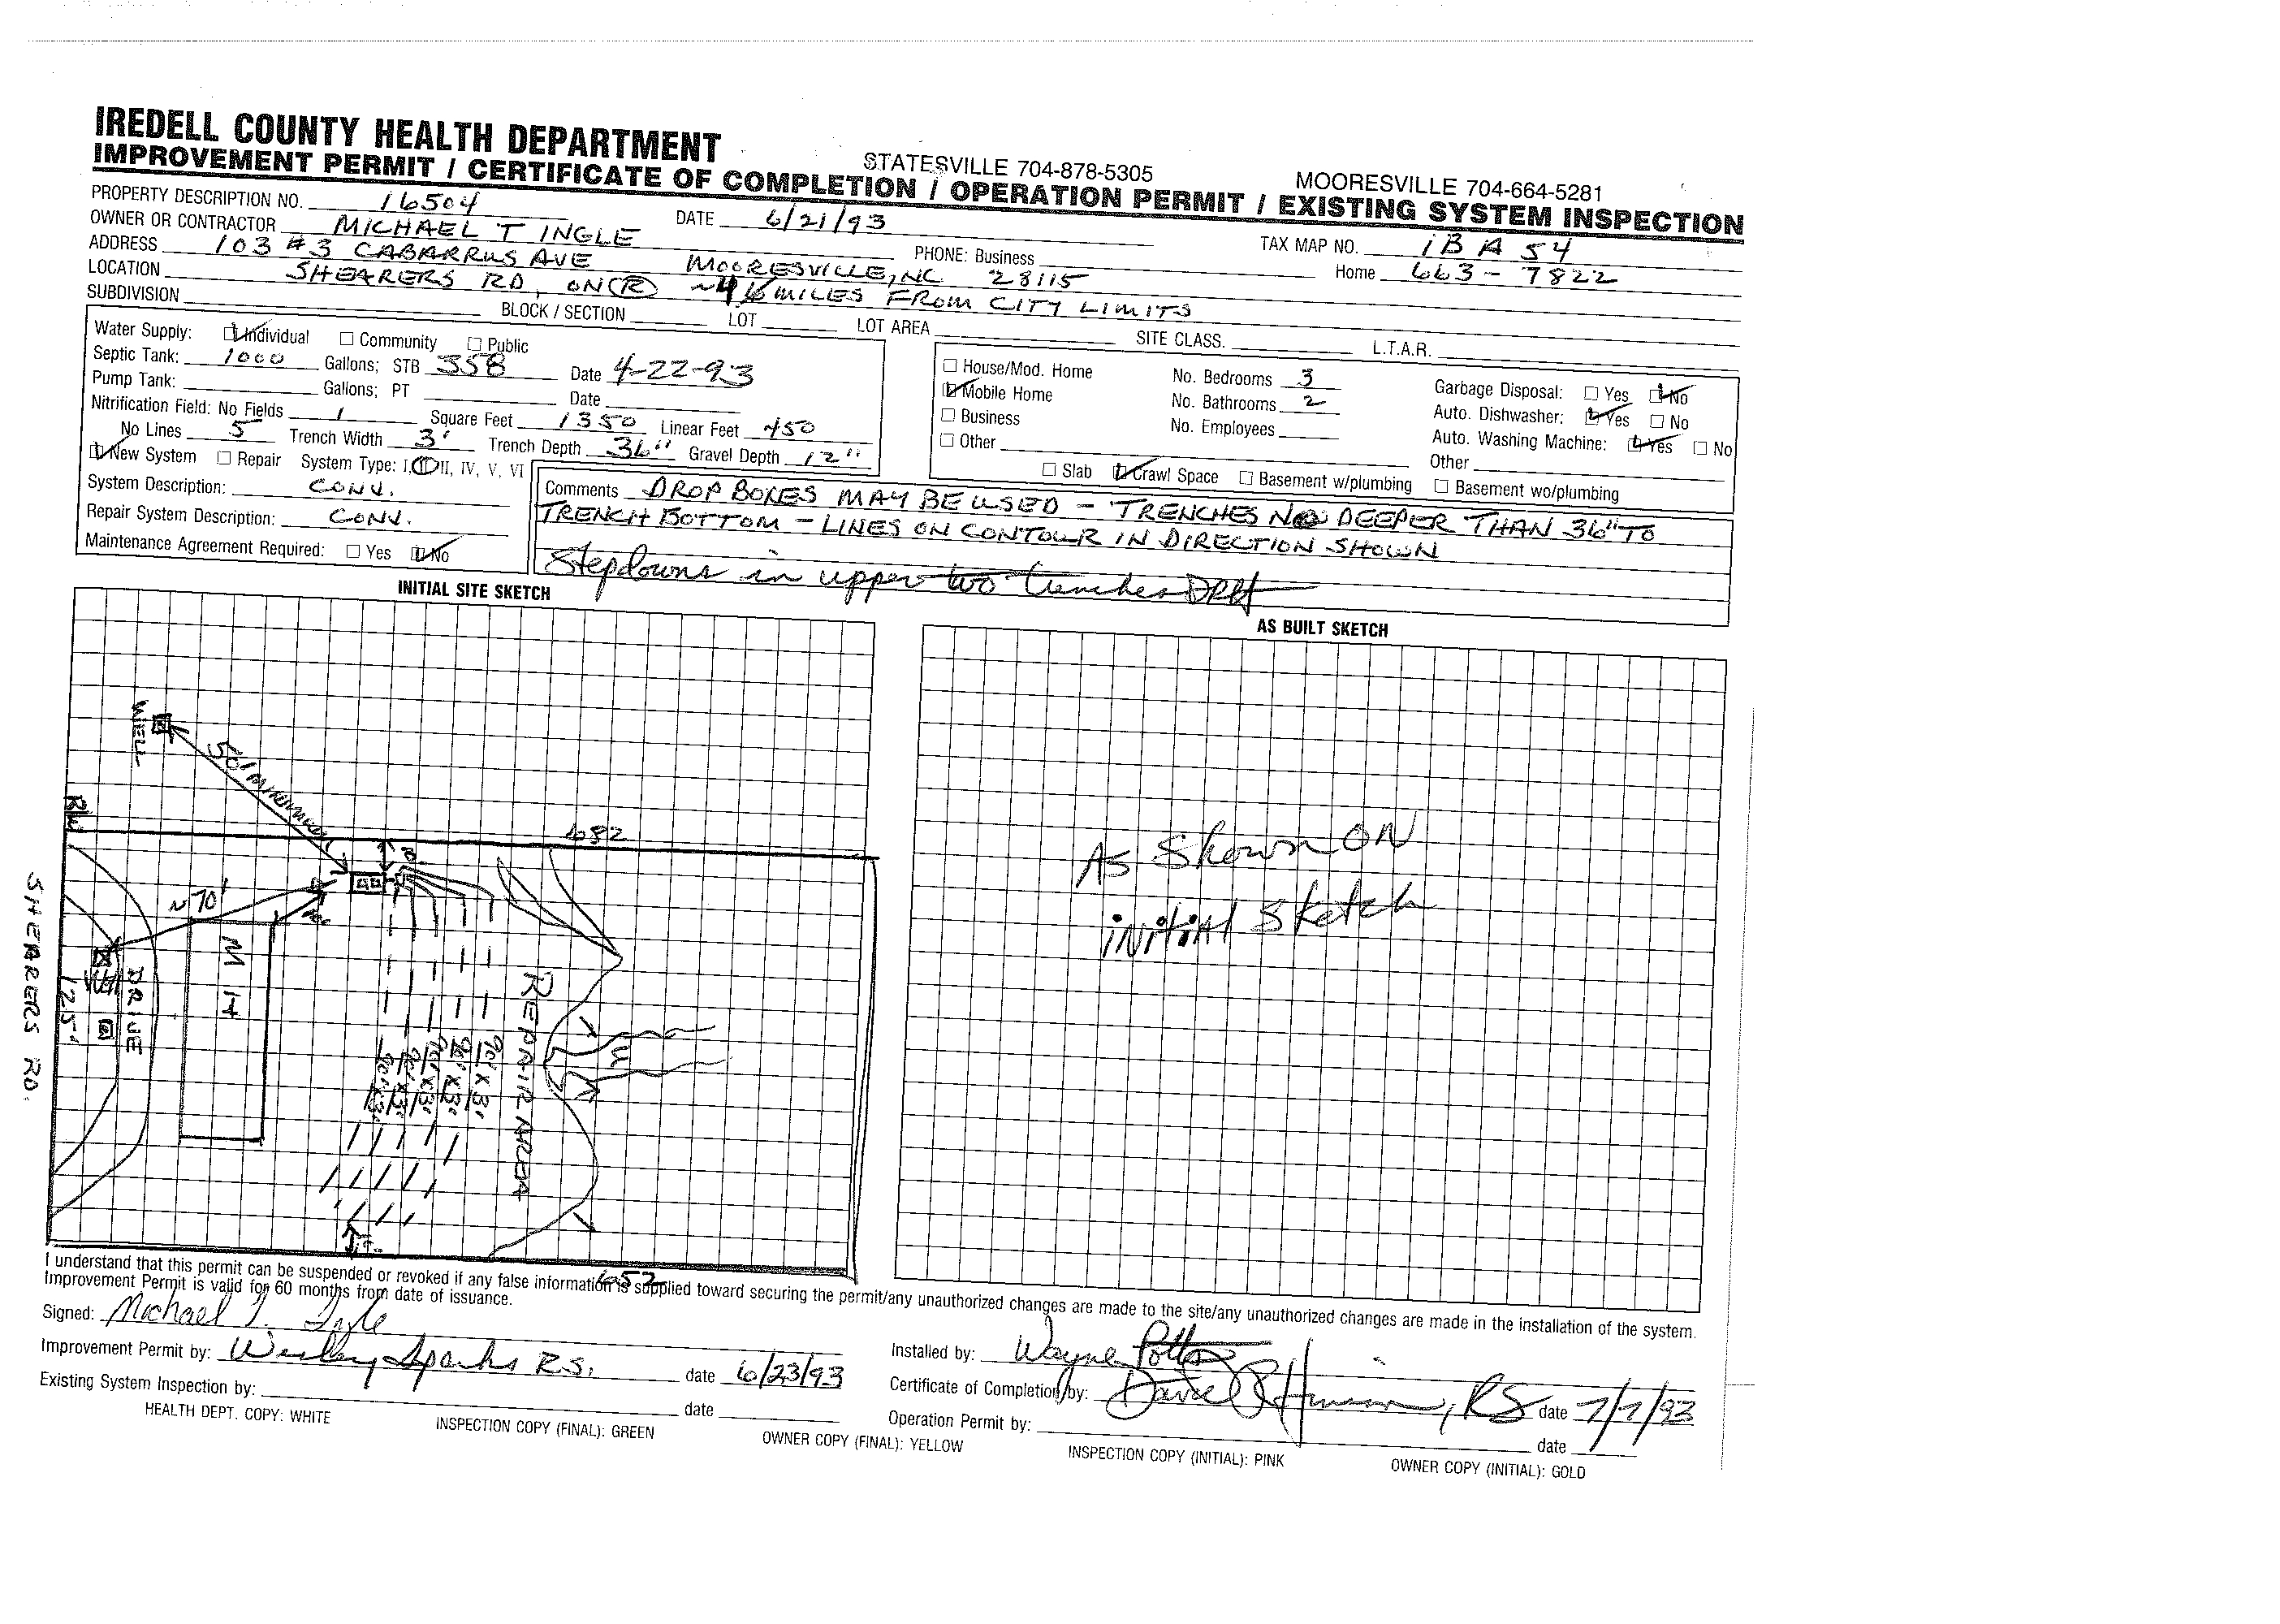 IREDELL COUNTY HEALTH DEPARTMENT STATESVILLE 704-878-5305 MOORESVILLE 704-664-5281
IMPROVEMENT PERMIT / CERTIFICATE OF COMPLETION / OPERATION PERMIT / EXISTING SYSTEM INSPECTION
PROPERTY DESCRIPTION NO. 16504 DATE 6/21/93 TAX MAP NO. 1B A 54
OWNER OR CONTRACTOR MICHAEL T INGLE PHONE: Business Home 663-7822
ADDRESS 103 #3 CABARRUS AVE MOORESVILLE, NC 28115
LOCATION SHEARERS RD, ON (R) ~4 MILES FROM CITY LIMITS
SUBDIVISION BLOCK / SECTION LOT LOT AREA SITE CLASS. L.T.A.R.
Water Supply: Individual Community Public
Septic Tank: 1000 Gallons; STB 358 Date 4-22-93
Pump Tank: Gallons; PT Date
Nitrification Field: No Fields 1 Square Feet 1350 Linear Feet 450
No Lines 5 Trench Width 3' Trench Depth 36" Gravel Depth 12"
House/Mod. Home No. Bedrooms 3 Garbage Disposal: Yes No
Mobile Home No. Bathrooms 2 Auto. Dishwasher: Yes No
Business No. Employees Auto. Washing Machine: Yes No
Other Other
Slab Crawl Space Basement w/plumbing Basement wo/plumbing
New System Repair System Type: I, II, III, IV, V, VI
System Description: CONV.
Repair System Description: CONV.
Maintenance Agreement Required: Yes No
Comments DROP BOXES MAY BE USED - TRENCHES NO DEEPER THAN 36" TO
TRENCH BOTTOM - LINES ON CONTOUR IN DIRECTION SHOWN
Stepdowns in upper two trenches DRH
INITIAL SITE SKETCH
AS BUILT SKETCH
WELL
50' minimum
R/W
682
~70'
M H
DRIVE
125'
SHEARERS RD.
90' X 3'
90' X 3'
90' X 3'
90' X 3'
90' X 3'
REPAIR AREA
As Shown ON
initial Sketch
652
I understand that this permit can be suspended or revoked if any false information is supplied toward securing the permit/any unauthorized changes are made to the site/any unauthorized changes are made in the installation of the system.
Improvement Permit is valid for 60 months from date of issuance.
Signed: Michael T. Ingle
Improvement Permit by: Wesley Sparks R.S. date 6/23/93
Existing System Inspection by: date
Installed by: Wayne Potts
Certificate of Completion by: , RS date 7/7/93
Operation Permit by: date
HEALTH DEPT. COPY: WHITE INSPECTION COPY (FINAL): GREEN OWNER COPY (FINAL): YELLOW INSPECTION COPY (INITIAL): PINK OWNER COPY (INITIAL): GOLD